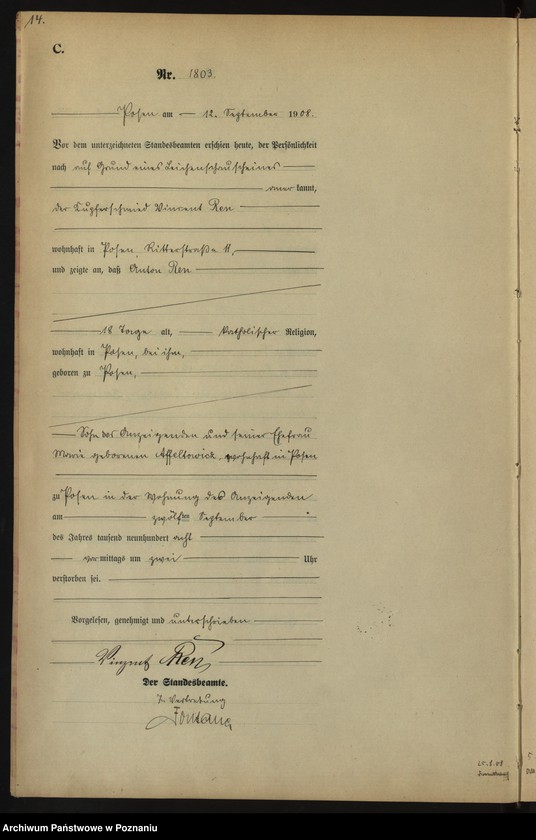 14.
C.
Nr. 1803.
Posen am 12. September 1908.
Vor dem unterzeichneten Standesbeamten erschien heute, der Persönlichkeit
nach auf Grund eines Leichenschauscheines
anerkannt,
der Kupferschmied Vincent Ren
wohnhaft in Posen, Ritterstraße 11,
und zeigte an, daß Anton Ren
18 Tage alt, katholischer Religion,
wohnhaft in Posen, bei ihm,
geboren zu Posen,
Sohn des Anzeigenden und seiner Ehefrau
Marie geborenen Affeltowicz, wohnhaft in Posen
zu Posen in der Wohnung des Anzeigenden
am zwölften September
des Jahres tausend neunhundert acht
vormittags um zwei Uhr
verstorben sei.
Vorgelesen, genehmigt und unterschrieben
Vinzent Ren
Der Standesbeamte.
In Vertretung
Fontane
Archiwum Państwowe w Poznaniu